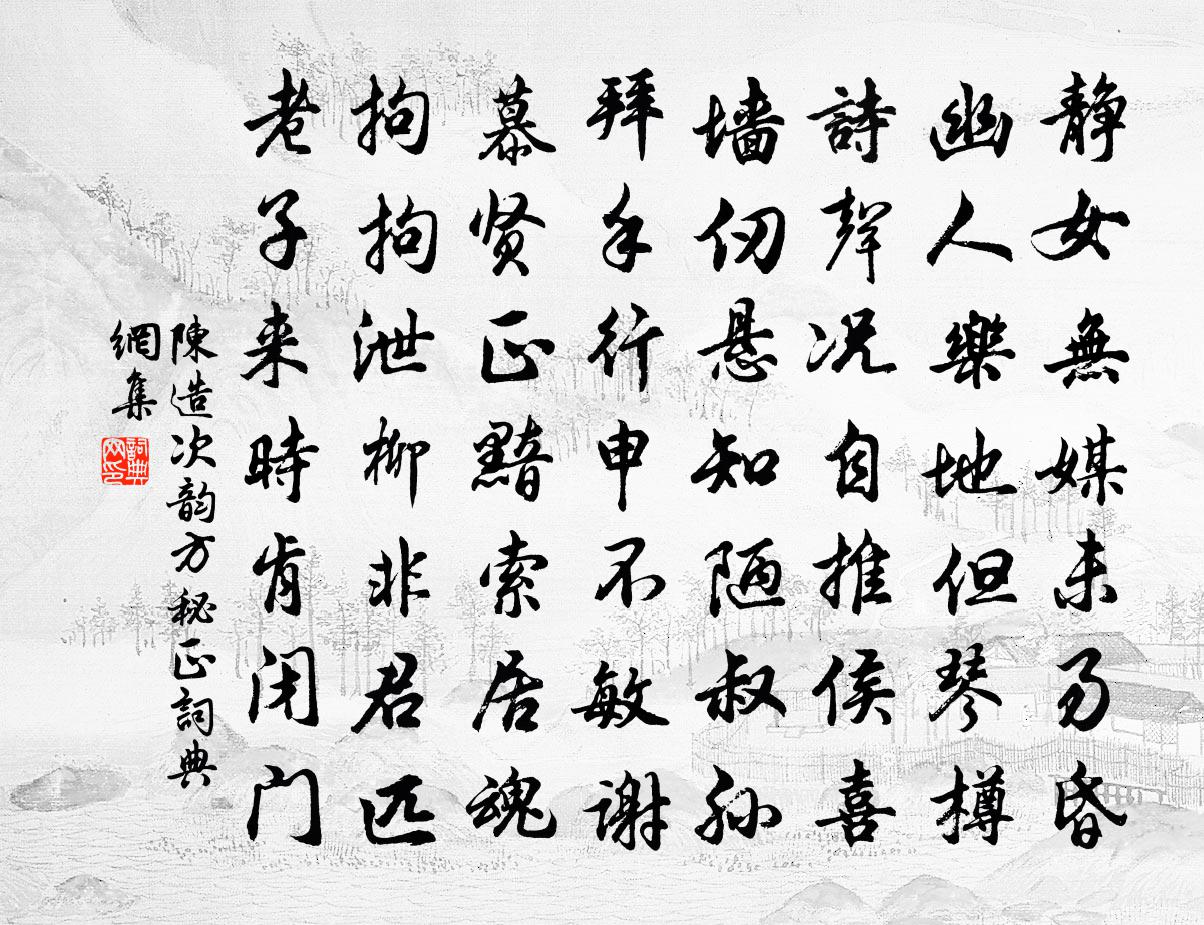 静女無媒未易昏
幽人樂地但琴樽
詩聲况自推侯喜
墙仞悬知陋叔孙
拜手行申不敏谢
慕贤正黯索居魂
拘拘泄柳非君匹
老子来時肯闭门
陳造次韵方秘正詞典
網集
詞典網印